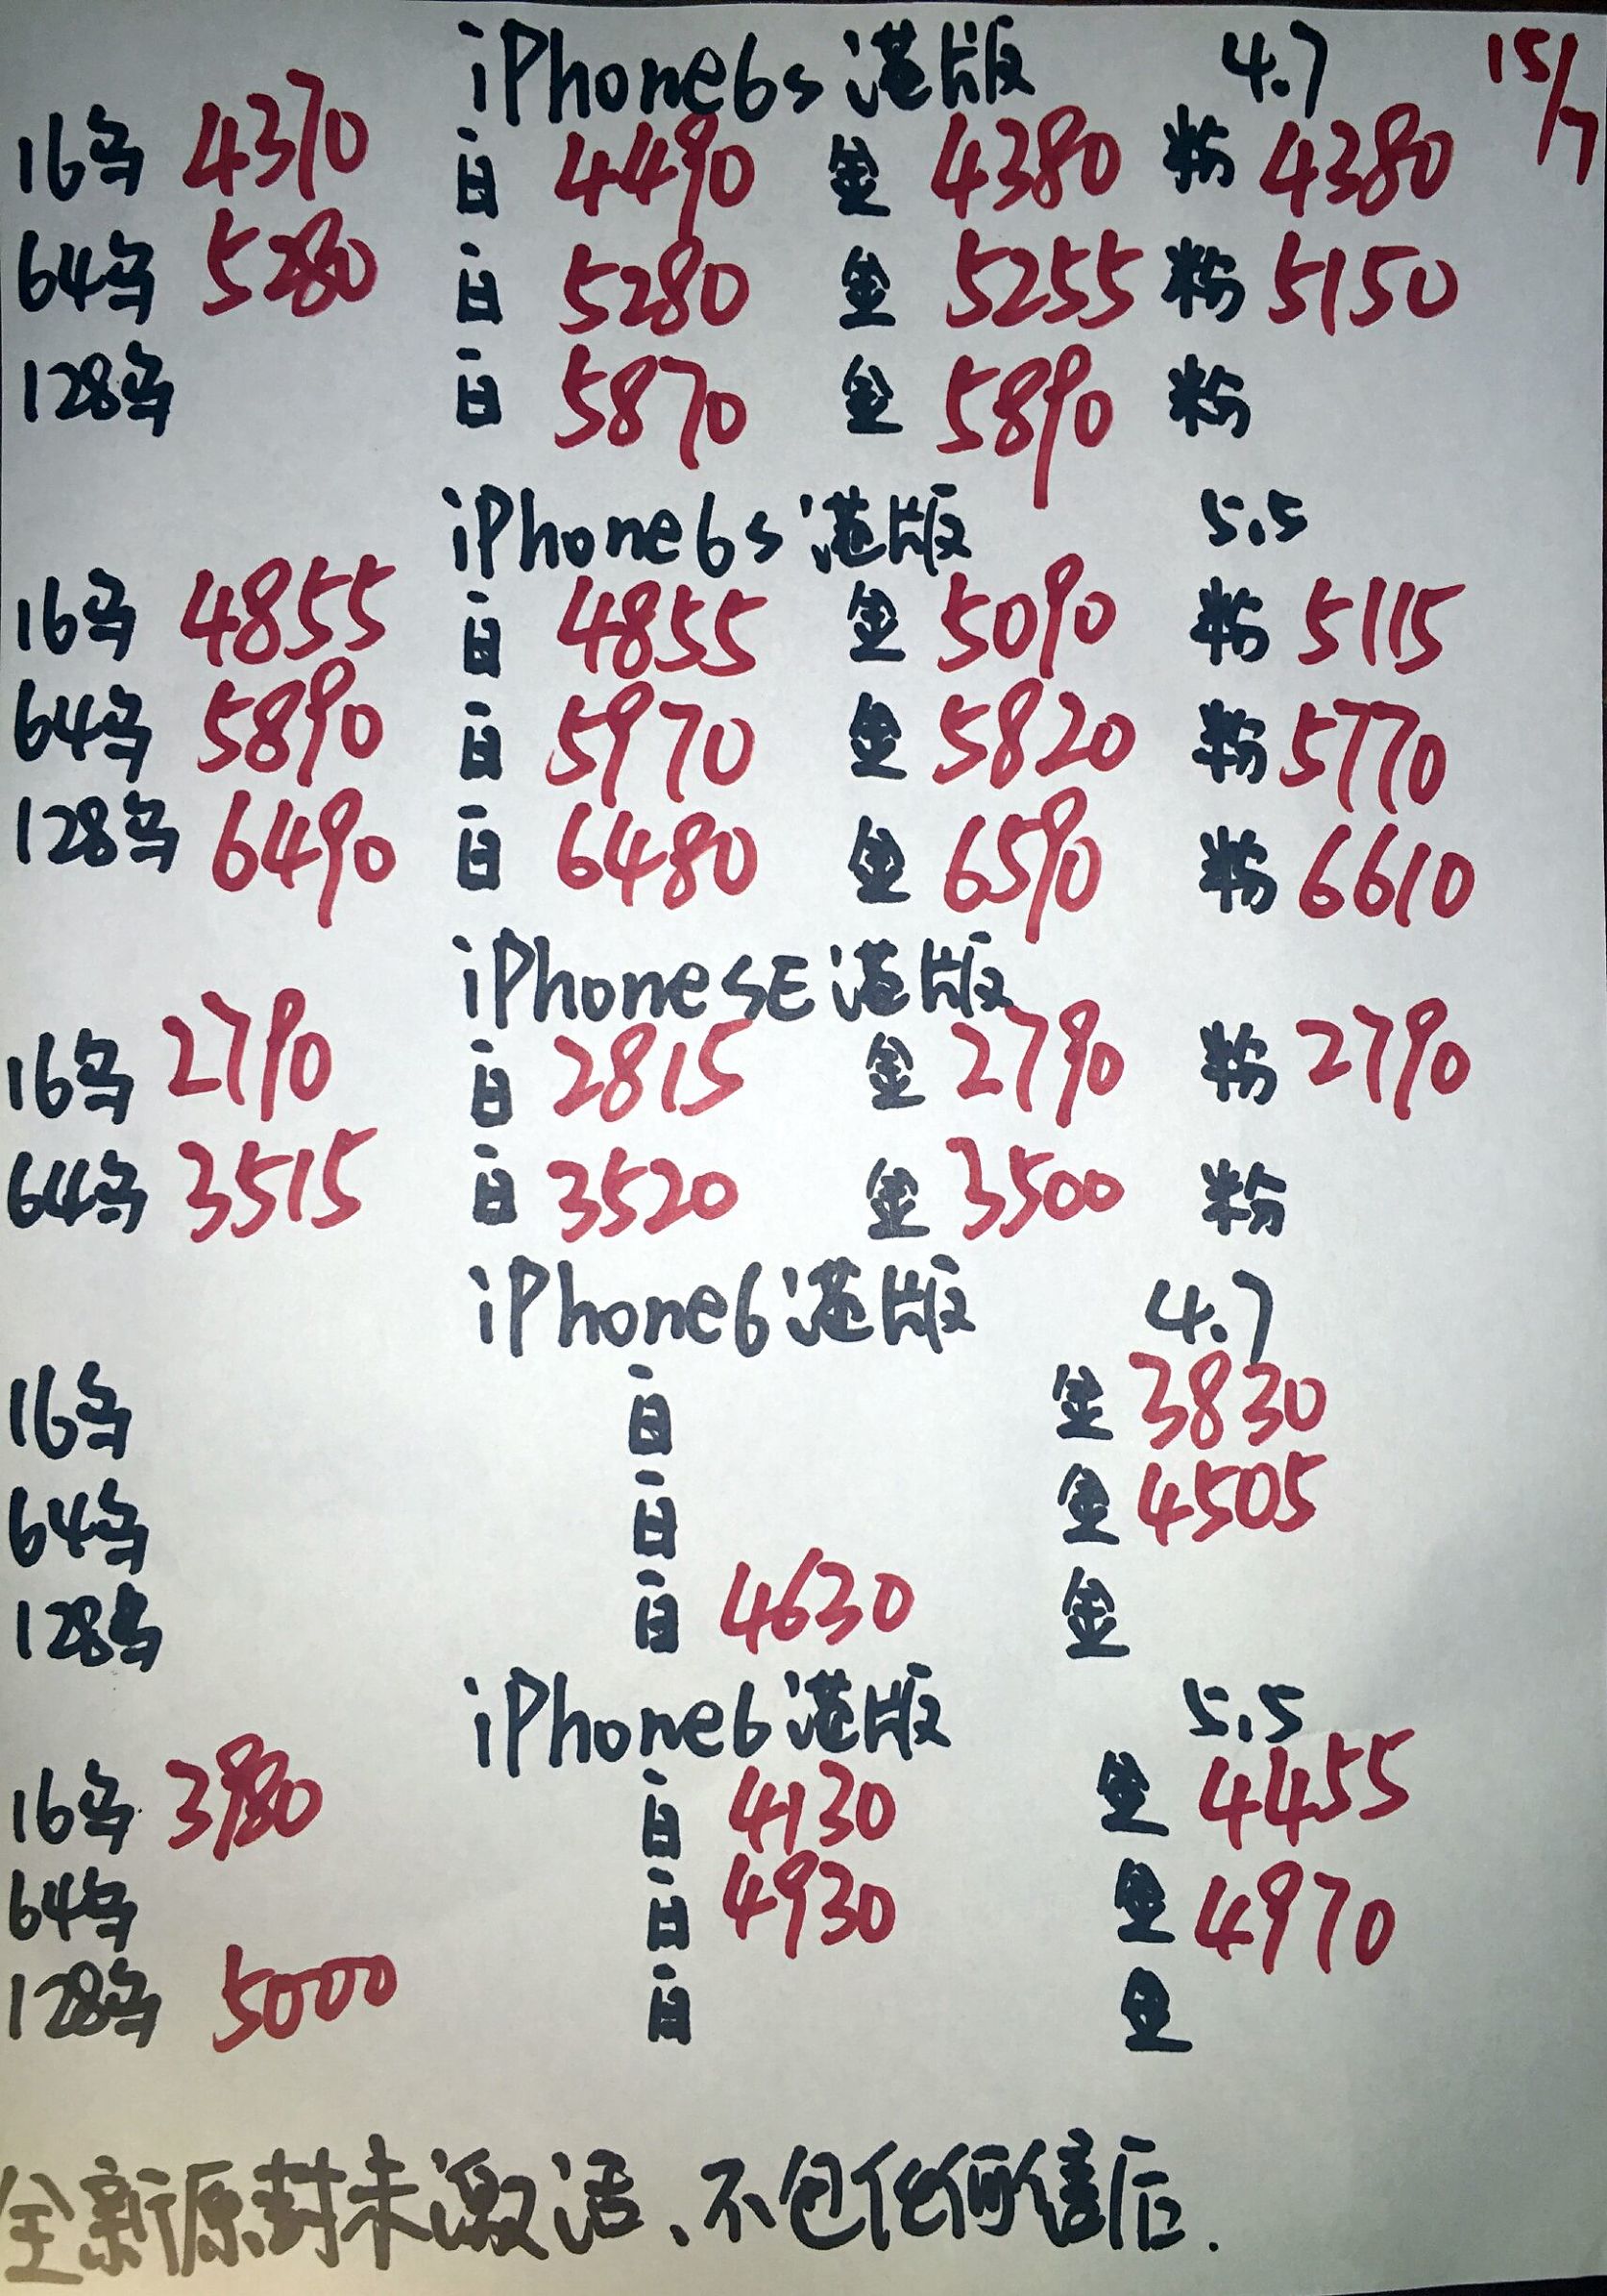 iPhone6s 港版 4.7 15/7
16乌 4370 白 4490 金 4380 粉 4380
64乌 5280 白 5280 金 5255 粉 5150
128乌 白 5870 金 5890 粉
iPhone6s 港版 5.5
16乌 4855 白 4855 金 5090 粉 5115
64乌 5890 白 5970 金 5820 粉 5770
128乌 6490 白 6480 金 6590 粉 6610
iPhoneSE 港版
16乌 2790 白 2815 金 2790 粉 2790
64乌 3515 白 3520 金 3500 粉
iPhone6 港版 4.7
16乌 白 金 3830
64乌 白 金 4505
128乌 白 4630 金
iPhone6 港版 5.5
16乌 3980 白 4130 金 4455
64乌 白 4930 金 4970
128乌 5000 白 金
全新原封未激活、不包任何售后.